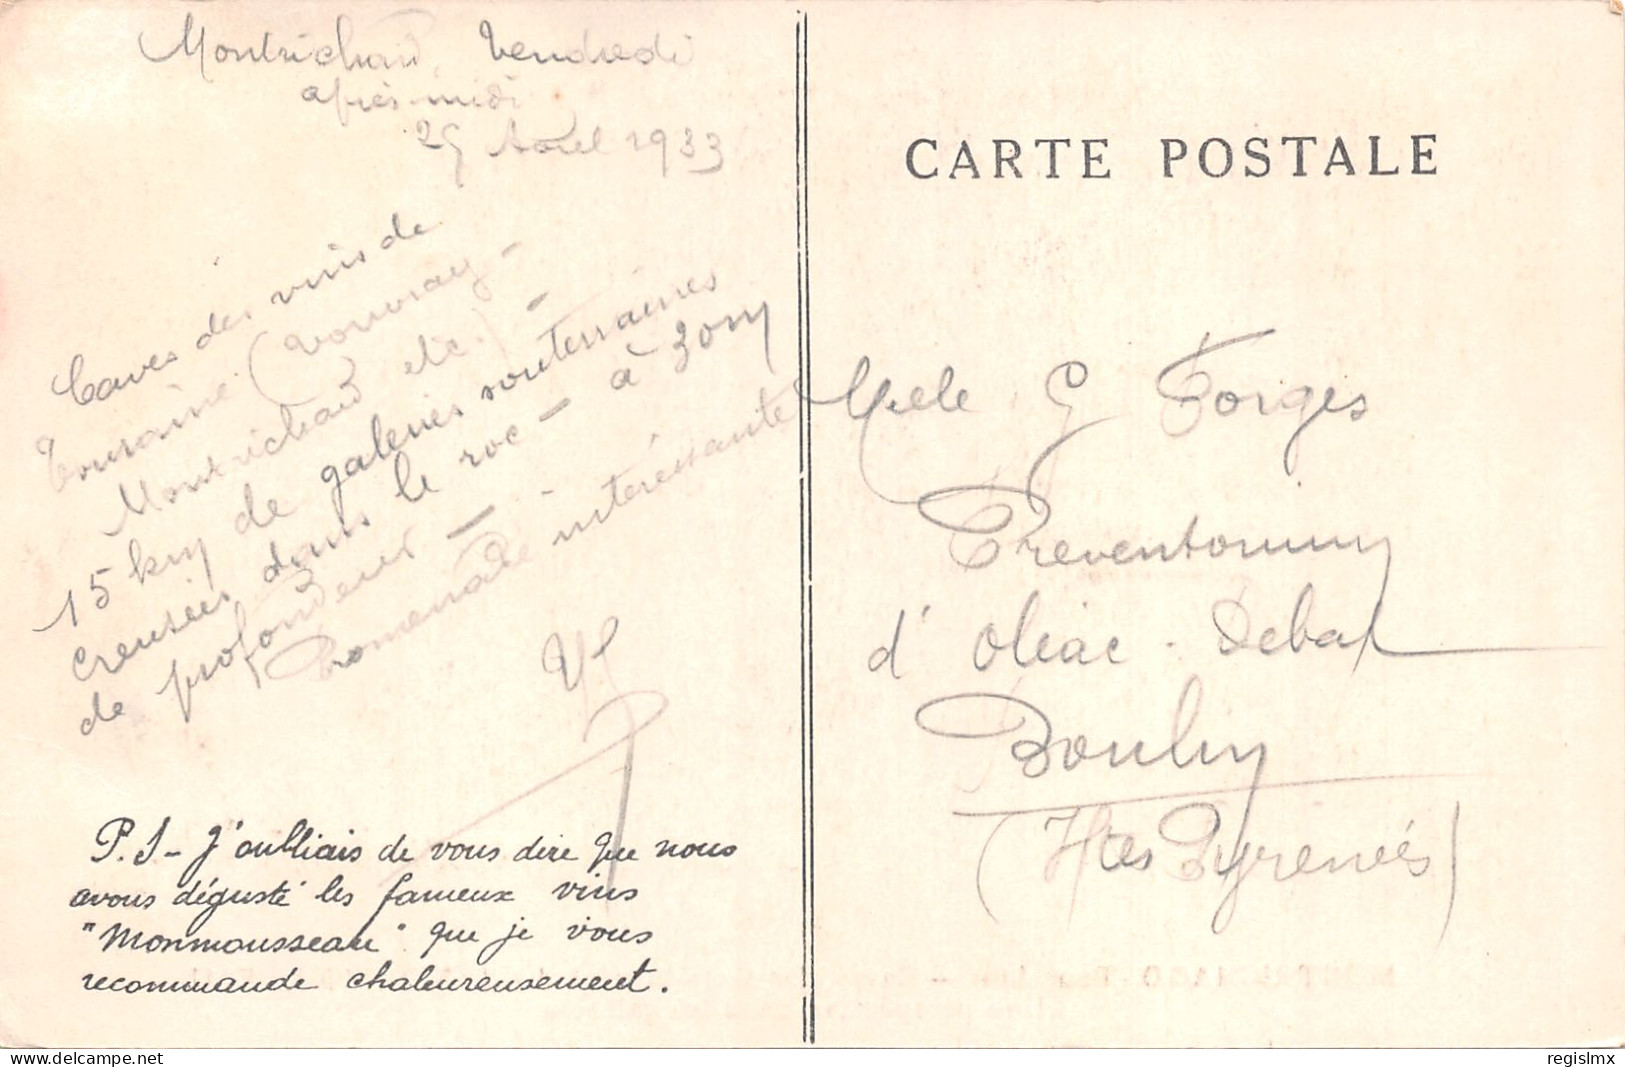 Montrichard Vendredi
après-midi
Avril 1933
Caves des vins de
Touraine (Vouvray -
Montrichard etc.) -
15 km de galeries souterraines
creusées dans le roc - à 30m
de profondeur -
Promenade intéressante
P.S - J'oubliais de vous dire que nous
avons dégusté les fameux vins
"Monmousseau" que je vous
recommande chaleureusement.
CARTE POSTALE
Melle G Forges
Preventorium
d'Oléac - Debat
Boulin
(Htes Pyrénées)
regislmx